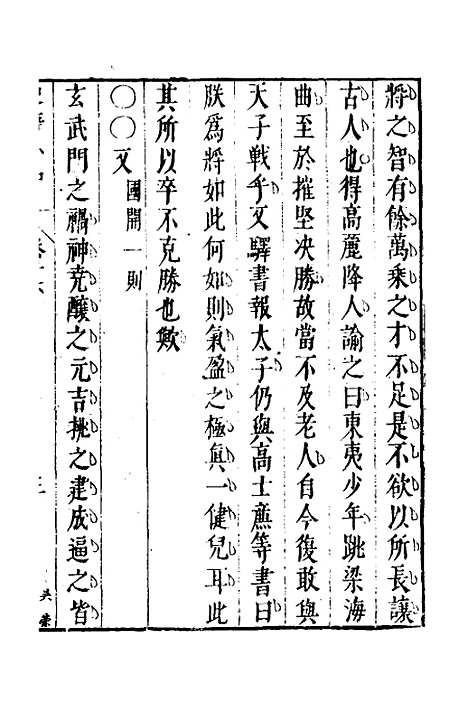 將之智有餘萬乘之才不足是不欲以所長讓
古人也得高麗降人諭之曰東夷少年跳梁海
曲至於摧堅決勝故當不及老人自今復敢與
天子戰乎又驛書報太子仍與高士廉等書曰
朕爲將如此何如則氣盈之極與一健兒耳此
其所以卒不克勝也歟
〇〇又 國開一則
玄武門之禍神堯釀之元吉挑之建成逼之皆